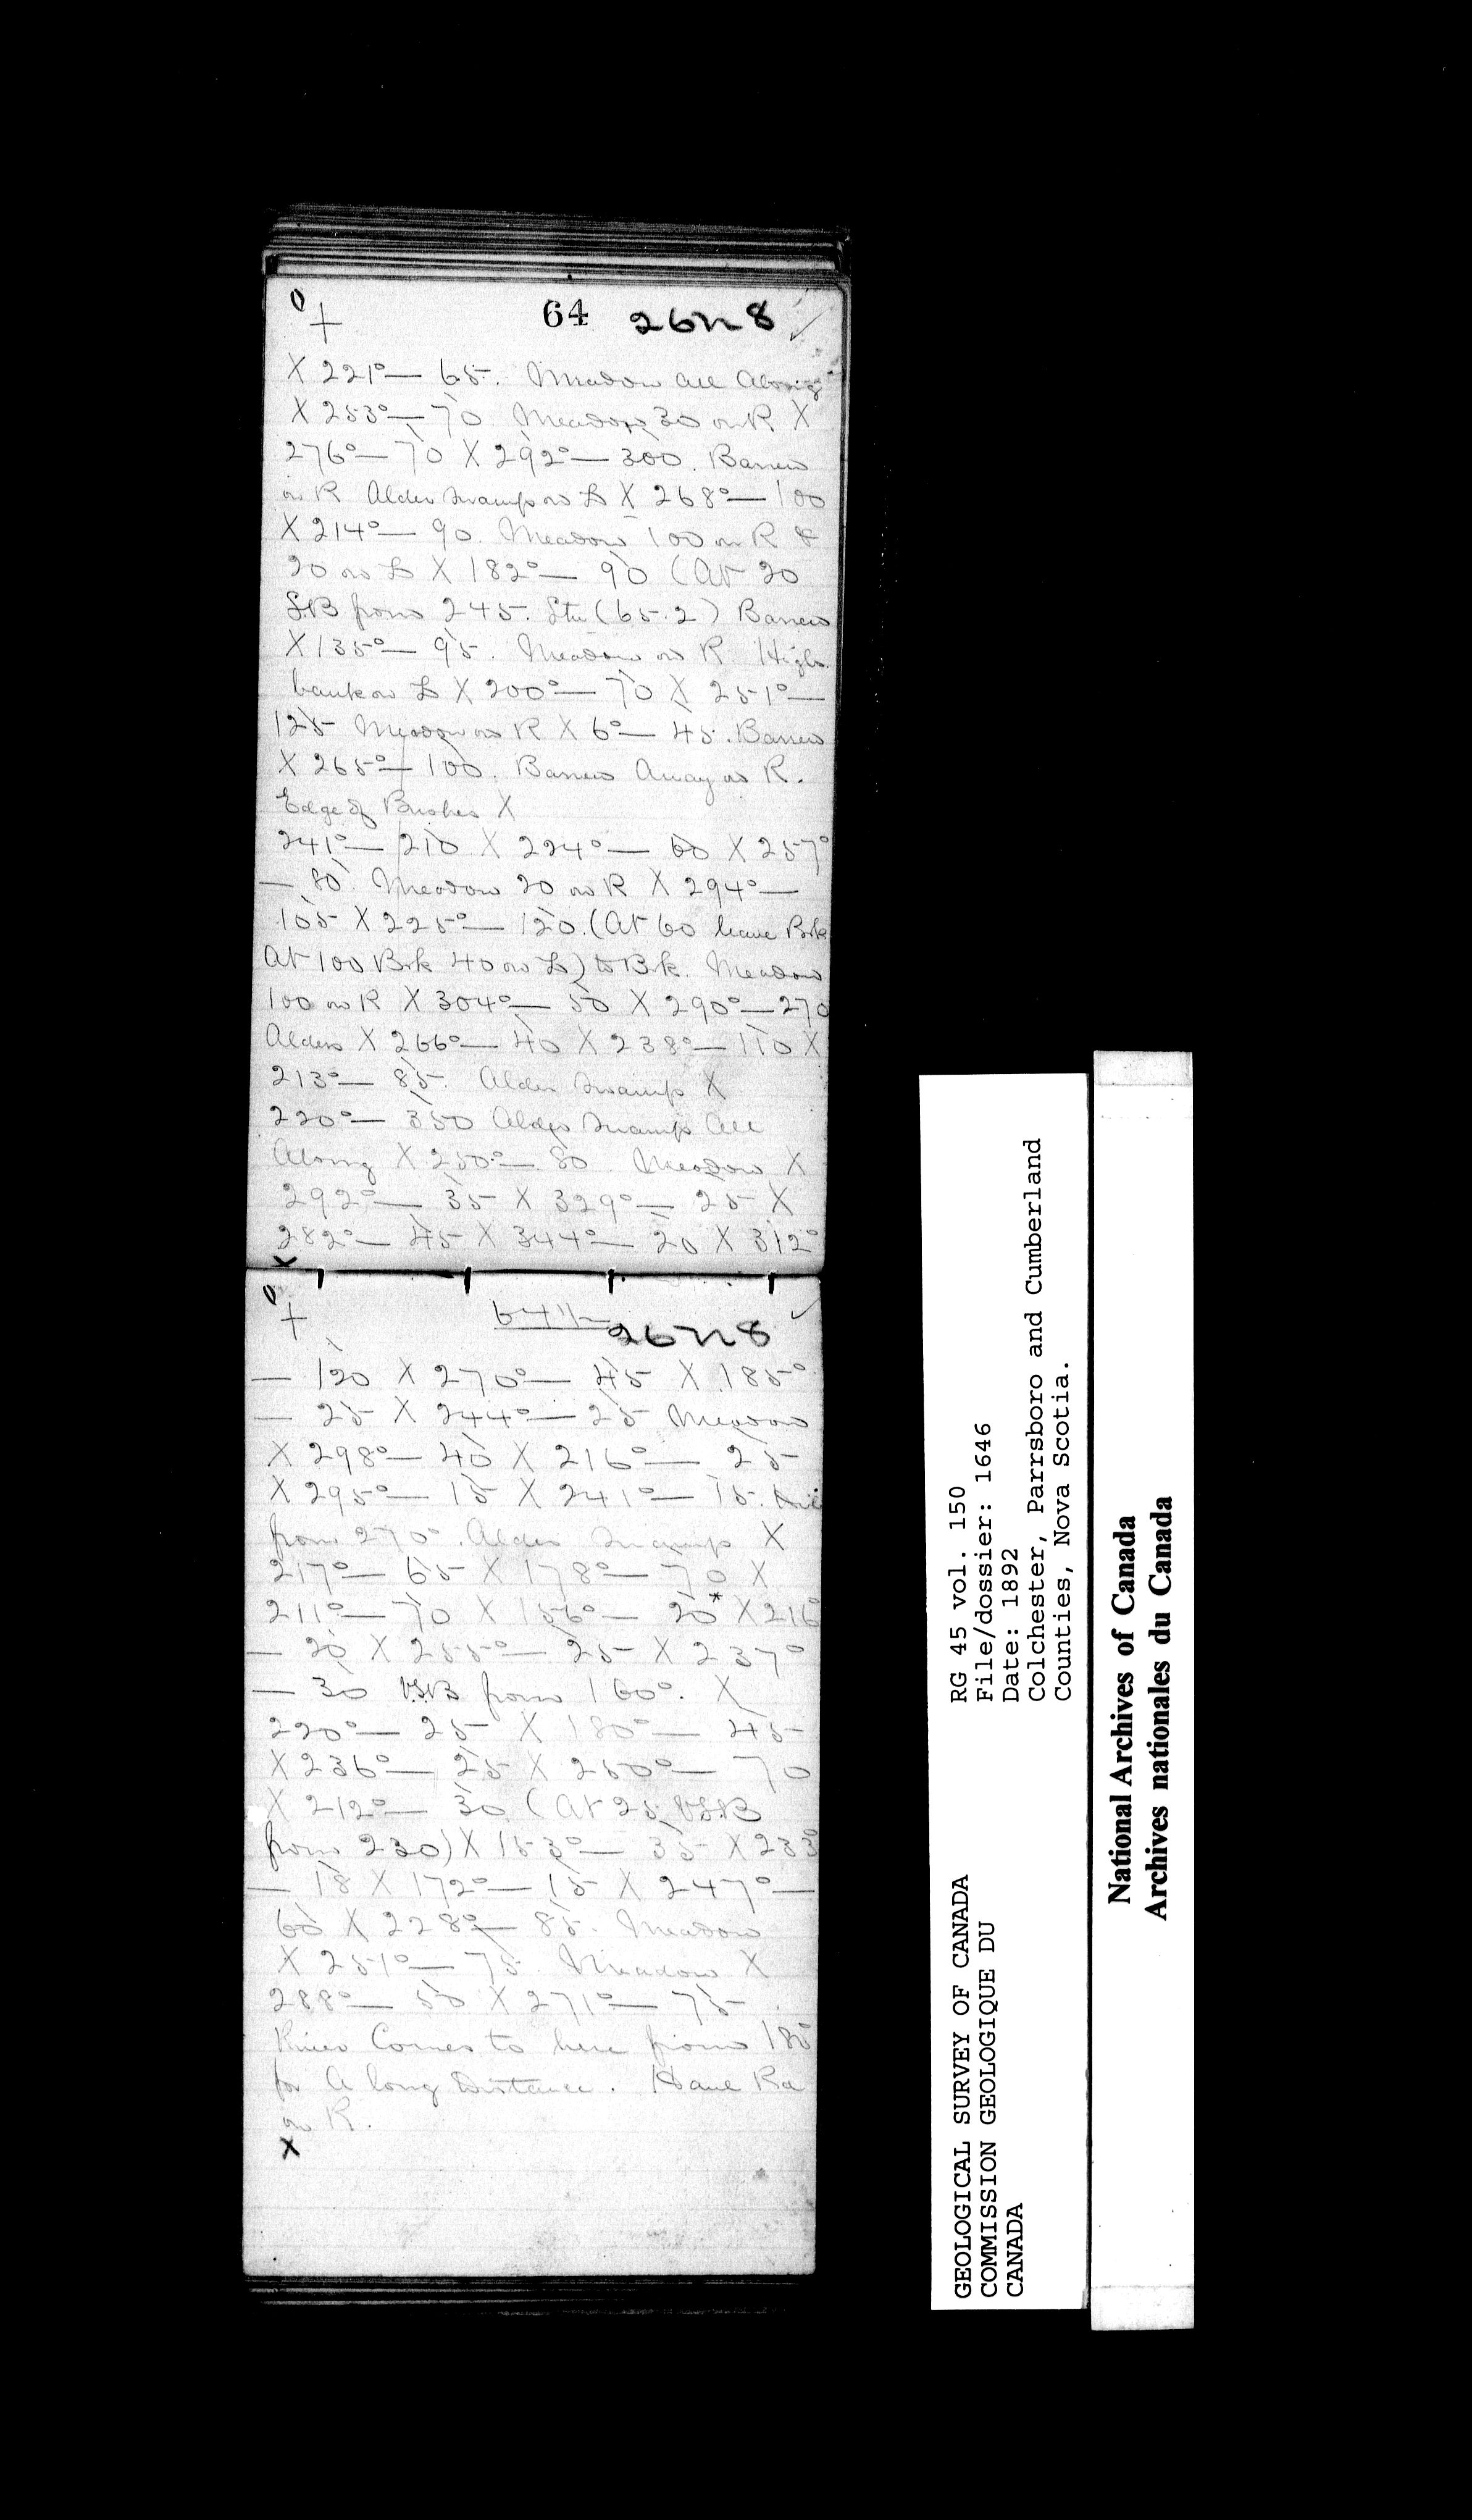 0 + 64 26n8 ✓
X 221° — 65. Meadow all along
X 253° — 70. Meadow 30 on R X
276° — 70 X 292° — 300. Barren
on R Alder Swamp on L X 268° — 100
X 214° — 90. Meadow 100 on R &
20 on L X 182° — 90 (At 20
S.B from 245. Stu (65.2) Barren
X 135° — 95. Meadow on R. High
bank on L X 200° — 70 X 251° —
125 Meadow on R X 6° — 45. Barren
X 265° — 100. Barren Away on R.
Edge of Bushes X
241° — 210 X 224° — 60 X 257°
— 80. Meadow 20 on R X 294° —
105 X 225° — 120. (At 60 leave Brk
At 100 Brk 40 on L) to Brk. Meadow
100 on R X 304° — 50 X 290° — 270
Alders X 266° — 40 X 238° — 110 X
213° — 85. Alder Swamp X
220° — 350 Alder Swamp All
Along X 250° — 80. Meadow X
292° — 35 X 329° — 25 X
282° — 45 X 344° — 20 X 312°
x
0 + 64 1/2 26n8 ✓
— 120 X 270° — 45 X 185°
— 25 X 244° — 25 Meadow
X 298° — 40 X 216° — 25
X 295° — 15 X 241° — 15.
from 270°. Alder Swamp X
217° — 65 X 178° — 70 X
211° — 70 X 156° — 20* X 216°
— 20 X 255° — 25 X 237°
— 30 VSB from 160°. X
220° — 25 X 180° — 45
X 236° — 25 X 250° — 70
X 212° — 30 (At 25 VSB
from 230) X 153° — 35 X 233°
— 18 X 172° — 15 X 247° —
60 X 228° — 85. Meadow
X 251° — 75. Meadow X
288° — 50 X 271° — 75.
River Comes to here from 180
for A long Distance. Haul Rd
on R.
x
GEOLOGICAL SURVEY OF CANADA
COMMISSION GEOLOGIQUE DU
CANADA
RG 45 vol. 150
File/dossier: 1646
Date: 1892
Colchester, Parrsboro and Cumberland
Counties, Nova Scotia.
National Archives of Canada
Archives nationales du Canada